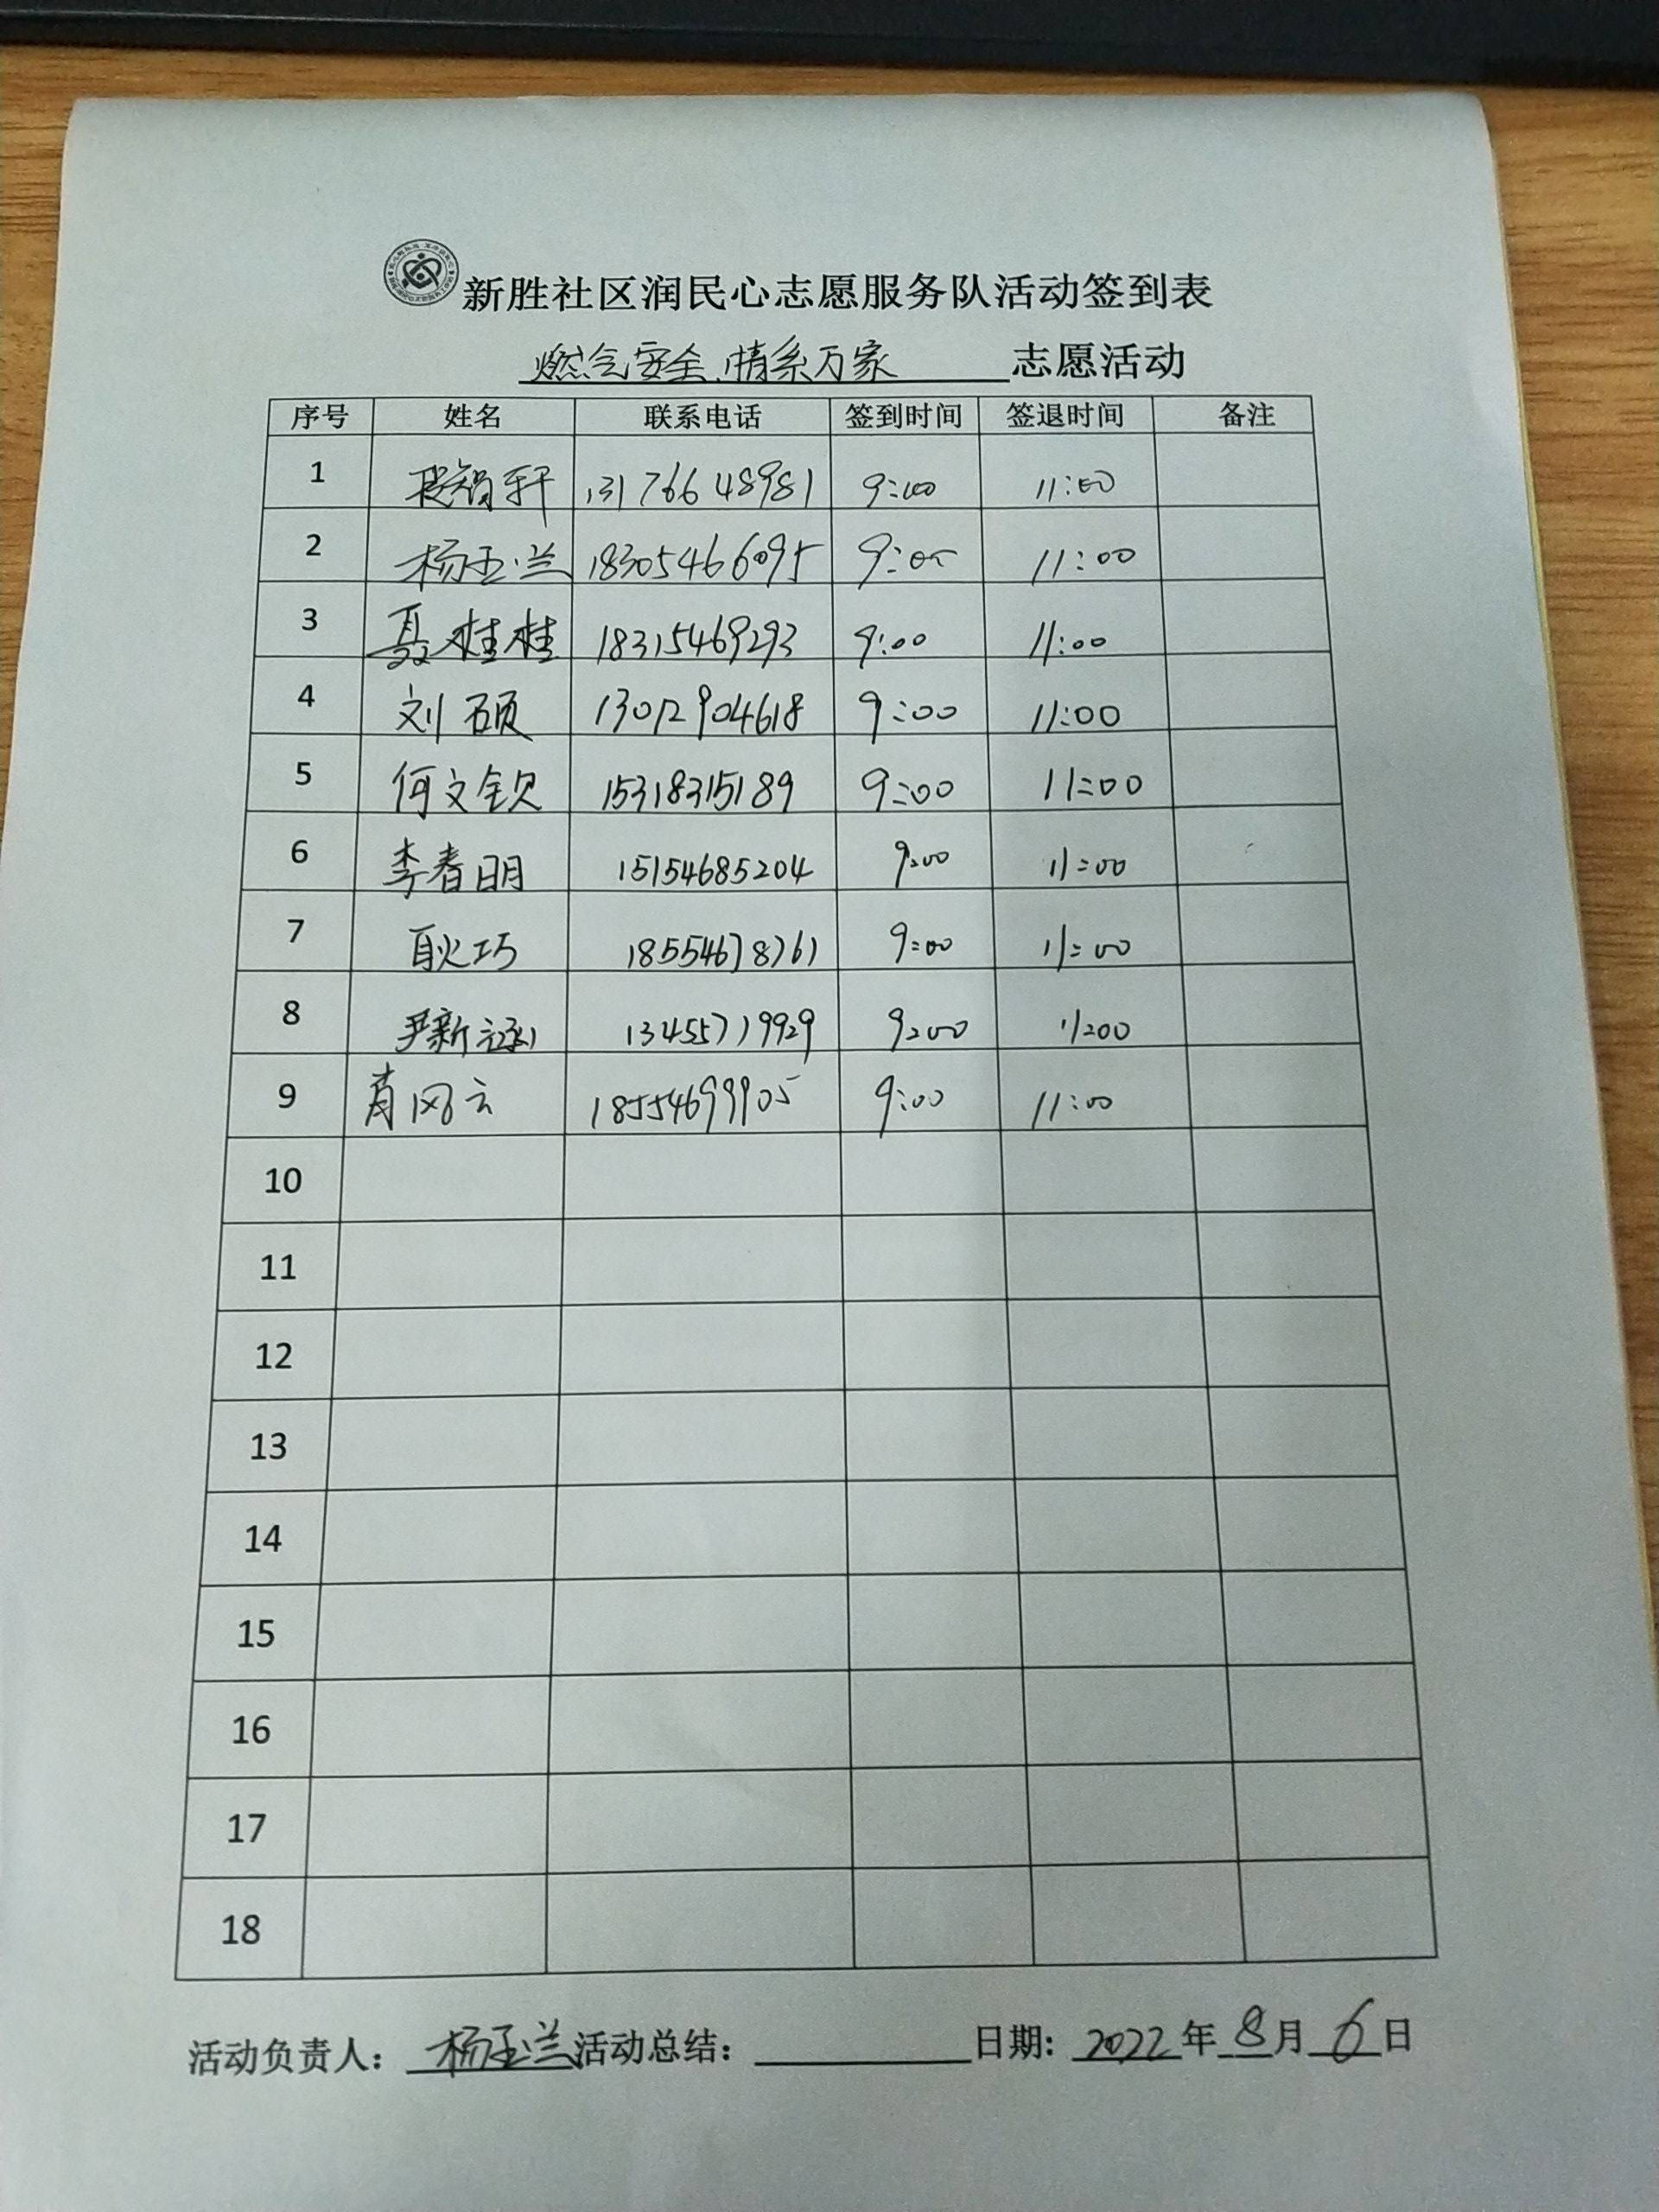 新胜社区润民心志愿服务队活动签到表
燃气安全、情系万家 志愿活动
序号 姓名 联系电话 签到时间 签退时间 备注
1 段智轩 13176648981 9:00 11:00
2 杨玉兰 18305466095 9:00 11:00
3 聂桂桂 18315469293 9:00 11:00
4 刘硕 13012904618 9:00 11:00
5 何文钦 15318315189 9:00 11:00
6 李春明 15154685204 9:00 11:00
7 耿巧 18554678761 9:00 11:00
8 严新涵 13455719929 9:00 11:00
9 肖风云 18554699905 9:00 11:00
10
11
12
13
14
15
16
17
18
活动负责人： 杨玉兰 活动总结： 日期: 2022 年 8 月 6 日